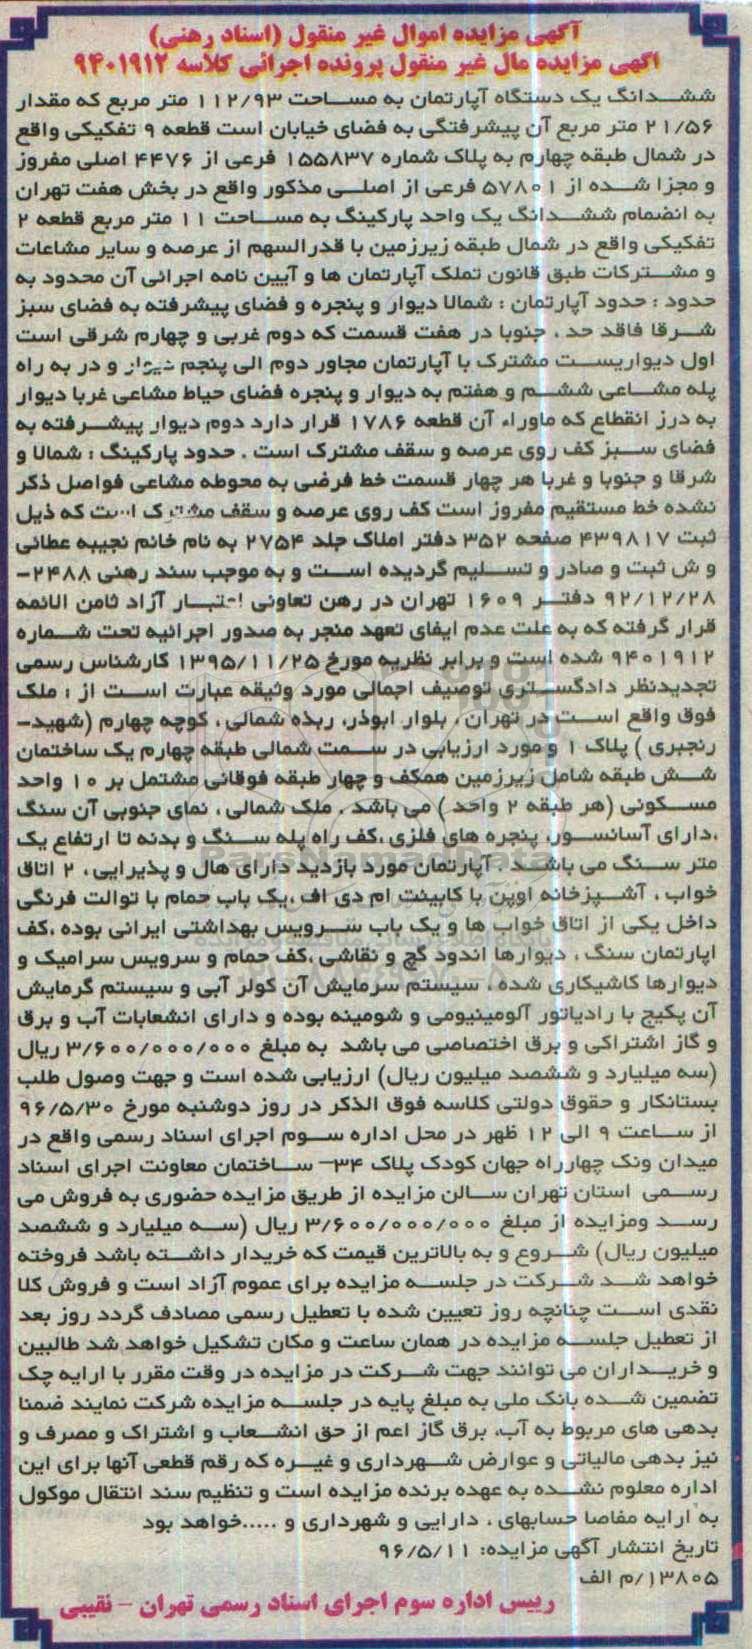 آگهی مزایده اموال غیر منقول (اسناد رهنی)
اگهی مزایده مال غیر منقول پرونده اجرائی کلاسه ۹۴۰۱۹۱۲
ششدانگ یک دستگاه آپارتمان به مساحت ۱۱۲/۹۳ متر مربع که مقدار
۲۱/۵۶ متر مربع آن پیشرفتگی به فضای خیابان است قطعه ۹ تفکیکی واقع
در شمال طبقه چهارم به پلاک شماره ۱۵۵۸۳۷ فرعی از ۴۴۷۶ اصلی مفروز
و مجزا شده از ۵۷۸۰۱ فرعی از اصلی مذکور واقع در بخش هفت تهران
به انضمام ششدانگ یک واحد پارکینگ به مساحت ۱۱ متر مربع قطعه ۲
تفکیکی واقع در شمال طبقه زیرزمین با قدرالسهم از عرصه و سایر مشاعات
و مشترکات طبق قانون تملک آپارتمان ها و آیین نامه اجرائی آن محدود به
حدود : حدود آپارتمان : شمالا دیوار و پنجره و فضای پیشرفته به فضای سبز
شرقا فاقد حد ، جنوبا در هفت قسمت که دوم غربی و چهارم شرقی است
اول دیواریست مشترک با آپارتمان مجاور دوم الی پنجم دیوار و در به راه
پله مشاعی ششم و هفتم به دیوار و پنجره فضای حیاط مشاعی غربا دیوار
به درز انقطاع که ماوراء آن قطعه ۱۷۸۶ قرار دارد دوم دیوار پیشرفته به
فضای سبز کف روی عرصه و سقف مشترک است . حدود پارکینگ : شمالا و
شرقا و جنوبا و غربا هر چهار قسمت خط فرضی به محوطه مشاعی فواصل ذکر
نشده خط مستقیم مفروز است کف روی عرصه و سقف مشترک است که ذیل
ثبت ۴۳۹۸۱۷ صفحه ۳۵۲ دفتر املاک جلد ۲۷۵۴ به نام خانم نجیبه عطائی
و ش ثبت و صادر و تسلیم گردیده است و به موجب سند رهنی ۲۴۸۸-
۹۲/۱۲/۲۸ دفتر ۱۶۰۹ تهران در رهن تعاونی اعتبار آزاد ثامن الائمه
قرار گرفته که به علت عدم ایفای تعهد منجر به صدور اجرائیه تحت شماره
۹۴۰۱۹۱۲ شده است و برابر نظریه مورخ ۱۳۹۵/۱۱/۲۵ کارشناس رسمی
تجدیدنظر دادگستری توصیف اجمالی مورد وثیقه عبارت است از : ملک
فوق واقع است در تهران ، بلوار ابوذر، ربذه شمالی ، کوچه چهارم (شهید-
رنجبری ) پلاک ۱ و مورد ارزیابی در سمت شمالی طبقه چهارم یک ساختمان
شش طبقه شامل زیرزمین همکف و چهار طبقه فوقانی مشتمل بر ۱۰ واحد
مسکونی (هر طبقه ۲ واحد ) می باشد . ملک شمالی ، نمای جنوبی آن سنگ
،دارای آسانسور، پنجره های فلزی ،کف راه پله سنگ و بدنه تا ارتفاع یک
متر سنگ می باشد . آپارتمان مورد بازدید دارای هال و پذیرایی ، ۲ اتاق
خواب ، آشپزخانه اوپن با کابینت ام دی اف ،یک باب حمام با توالت فرنگی
داخل یکی از اتاق خواب ها و یک باب سرویس بهداشتی ایرانی بوده ،کف
اپارتمان سنگ ، دیوارها اندود گچ و نقاشی ،کف حمام و سرویس سرامیک و
دیوارها کاشیکاری شده ، سیستم سرمایش آن کولر آبی و سیستم گرمایش
آن پکیج با رادیاتور آلومینیومی و شومینه بوده و دارای انشعابات آب و برق
و گاز اشتراکی و برق اختصاصی می باشد به مبلغ ۳/۶۰۰/۰۰۰/۰۰۰ ریال
(سه میلیارد و ششصد میلیون ریال) ارزیابی شده است و جهت وصول طلب
بستانکار و حقوق دولتی کلاسه فوق الذکر در روز دوشنبه مورخ ۹۶/۵/۳۰
از ساعت ۹ الی ۱۲ ظهر در محل اداره سوم اجرای اسناد رسمی واقع در
میدان ونک چهارراه جهان کودک پلاک ۳۴- ساختمان معاونت اجرای اسناد
رسمی استان تهران سالن مزایده از طریق مزایده حضوری به فروش می
رسد ومزایده از مبلغ ۳/۶۰۰/۰۰۰/۰۰۰ ریال (سه میلیارد و ششصد
میلیون ریال) شروع و به بالاترین قیمت که خریدار داشته باشد فروخته
خواهد شد شرکت در جلسه مزایده برای عموم آزاد است و فروش کلا
نقدی است چنانچه روز تعیین شده با تعطیل رسمی مصادف گردد روز بعد
از تعطیل جلسه مزایده در همان ساعت و مکان تشکیل خواهد شد طالبین
و خریداران می توانند جهت شرکت در مزایده در وقت مقرر با ارایه چک
تضمین شده بانک ملی به مبلغ پایه در جلسه مزایده شرکت نمایند ضمنا
بدهی های مربوط به آب، برق گاز اعم از حق انشعاب و اشتراک و مصرف و
نیز بدهی مالیاتی و عوارض شهرداری و غیره که رقم قطعی آنها برای این
اداره معلوم نشده به عهده برنده مزایده است و تنظیم سند انتقال موکول
به ارایه مفاصا حسابهای ، دارایی و شهرداری و .....خواهد بود
تاریخ انتشار آگهی مزایده: ۹۶/۵/۱۱
۱۳۸۰۵/م الف
رییس اداره سوم اجرای اسناد رسمی تهران - نقیبی
ParsNamadData